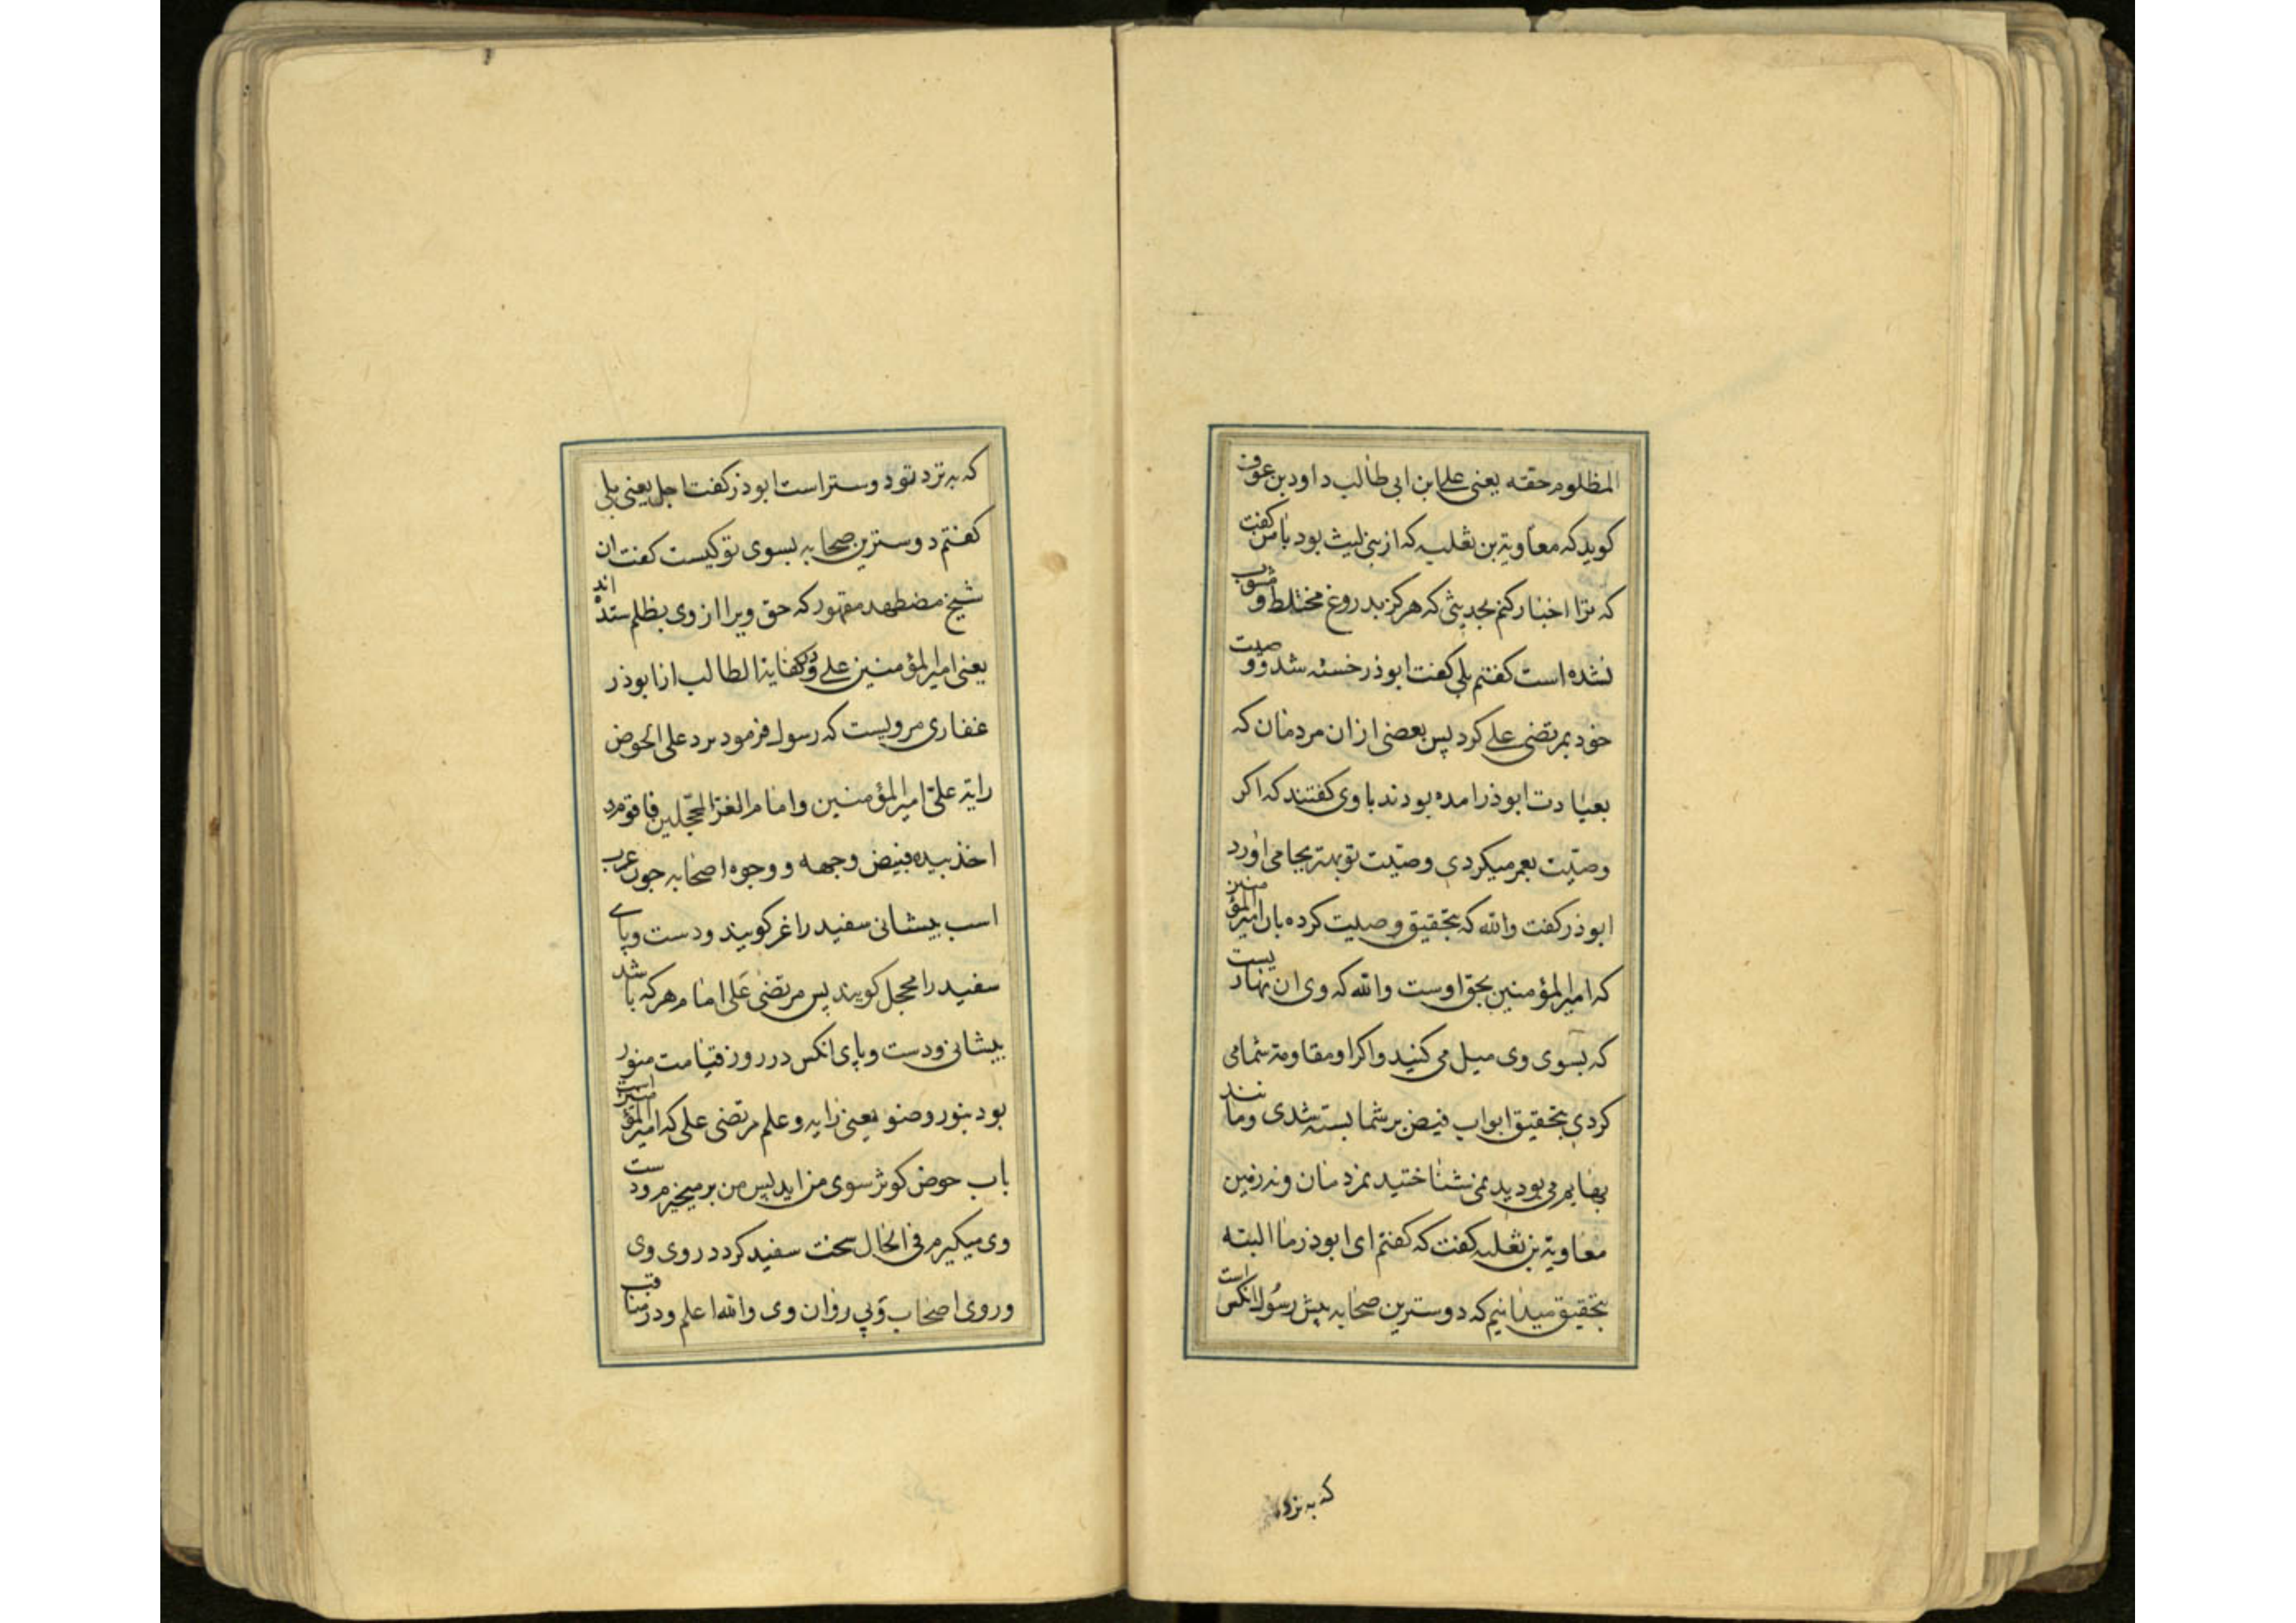 المظلوم حقه یعنی علی ابن ابی طالب داود بن عوف
کوید که معاویة بن ثعلبه که از بنی لیث بود با من کفت
که ترا اخبار کنم بحدیثی که هرکز بدروغ مختلط و مشوب
نشده است کفتم بلی کفت ابوذر خسته شد و وصیت
خود بمرتضی علی کرد پس بعضی از ان مردمان که
بعیادت ابوذر امده بودند با وی کفتند که اکر
وصیت بعمر میکردی وصیت تو بهتر بجا می اورد
ابوذر کفت والله که بتحقیق وصیت کرده بان امیر المؤمنین
که امیر المؤمنین بحق اوست والله که وی ان
که بسوی وی میل می کنید واکر او مقاومة شما می
کردی بتحقیق ابواب فیض بر شما بسته شدی ومانند
می بودید نمی شناختید نمردمان ونه زمین
معاویة بن ثعلبه کفت که کفتم ای ابوذر ما البته
بتحقیق میدانیم که دوسترین صحابه پیش رسول انکس است
که به نزد
که به نزد تو دوستر است ابوذر کفت اجل یعنی بلی
کفتم دوسترین صحابه بسوی تو کیست کفت ان
شیخ مضطهد مقهور که حق ویرا از وی بظلم ستده اند
یعنی امیر المؤمنین علی ودر کفایة الطالب از ابوذر
غفاری مرویست که رسول فرمود یرد علی الحوض
رایة علی امیر المؤمنین وامام الغر المحجلین فاقوم
اخذ بیده فبیض وجهه و وجوه اصحابه چون عرب
اسب پیشانی سفید را غر کویند ودست وپای
سفید را محجل کویند پس مرتضی علی امام هر که باشد
پیشانی ودست وپای انکس در روز قیامت منور
بود بنور وضو یعنی رایه وعلم مرتضی علی که امیر المؤمنین است
باب حوض کوثر سوی من اید پس من بر میخیزم ودست
وی میکیرم فی الحال سخت سفید کردد روی وی
وروی اصحاب وپی روان وی والله اعلم ودر مناقب